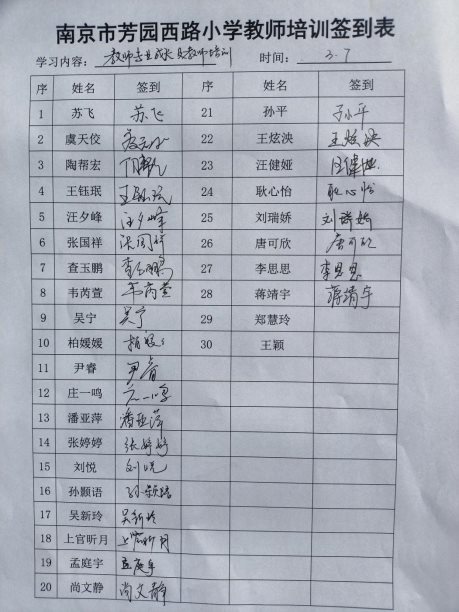 南京市芳园西路小学教师培训签到表
学习内容：教师专业成长及教师培训 时间：3.7
序 姓名 签到 序 姓名 签到
1 苏飞 苏飞 21 孙平 孙平
2 虞天佼 虞天佼 22 王炫泱 王炫泱
3 陶帮宏 陶帮宏 23 汪健娅 汪健娅
4 王钰珉 王钰珉 24 耿心怡 耿心怡
5 汪夕峰 汪夕峰 25 刘瑞娇 刘瑞娇
6 张国祥 张国祥 26 唐可欣 唐可欣
7 查玉鹏 查玉鹏 27 李思思 李思思
8 韦芮萱 韦芮萱 28 蒋靖宇 蒋靖宇
9 吴宁 吴宁 29 郑慧玲
10 柏媛媛 柏媛媛 30 王颖
11 尹睿 尹睿
12 庄一鸣 庄一鸣
13 潘亚萍 潘亚萍
14 张婷婷 张婷婷
15 刘悦 刘悦
16 孙颢语 孙颢语
17 吴新玲 吴新玲
18 上官昕月 上官昕月
19 孟庭宇 孟庭宇
20 尚文静 尚文静